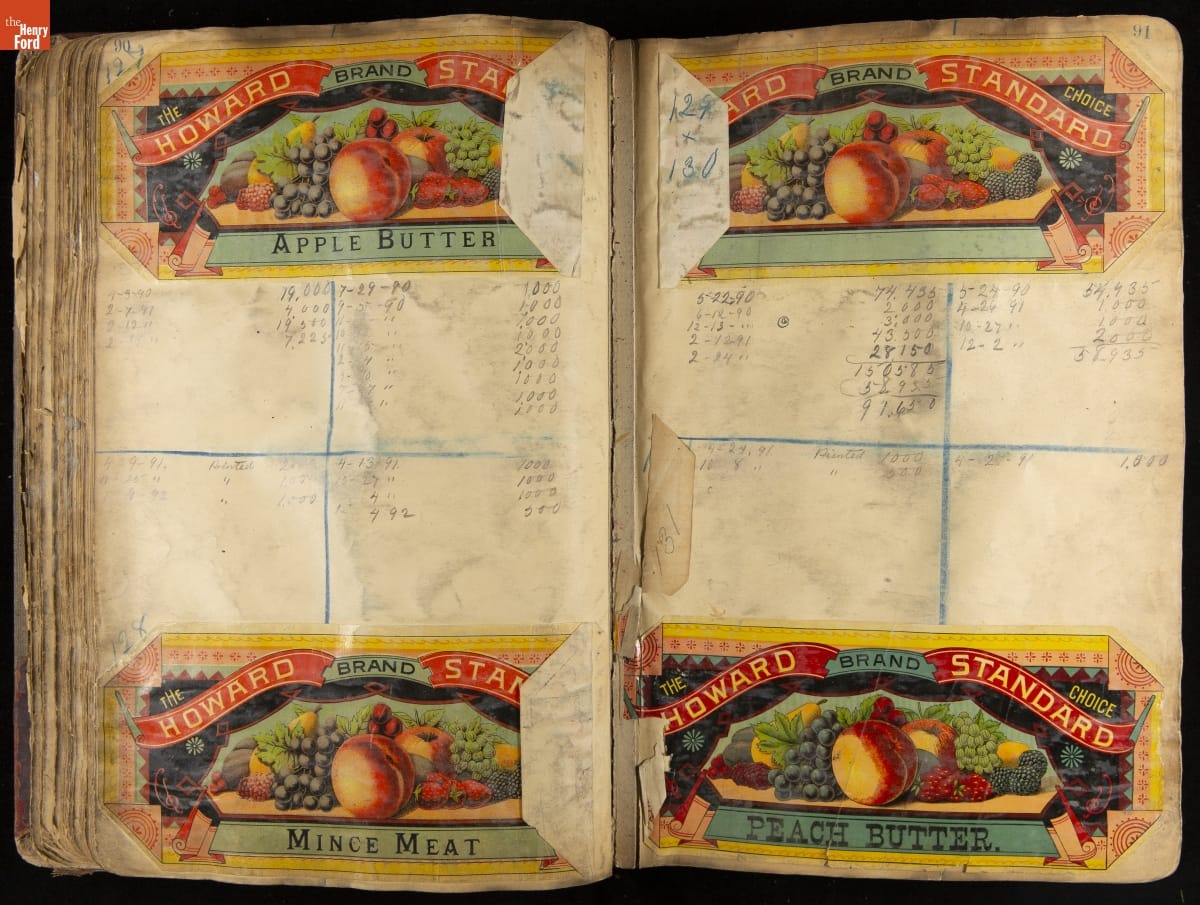 the Henry Ford
90
127
THE HOWARD BRAND STAN
APPLE BUTTER
19,000 7-29-80 1,000
4,000 9-5-90 1,000
19,500 " 1,000
7,225 " 1000
2,000
1,000
" 1000
" 1,000
" 1,000
4-9-91 Printed 4-13-91 1000
" 27 " 1000
92 " 1,000 4 " 1000
12 4 92 500
128
THE HOWARD BRAND STAN
MINCE MEAT
91
129
x
130
ARD BRAND STANDARD CHOICE
5-22-90 74,435 5-24-90 54,935
6-12-90 2,000 4-24-91 1,000
12-13-" 3,000 10-27 " 1000
2-12-91 43,500 12-2 " 2000
2-24 " 28150 58,935
150585
58935
91,650
4-24-91 Printed 1000 91 1,000
10 8 " " 500
131
THE HOWARD BRAND STANDARD CHOICE
PEACH BUTTER.